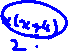 x(x+4)
2.